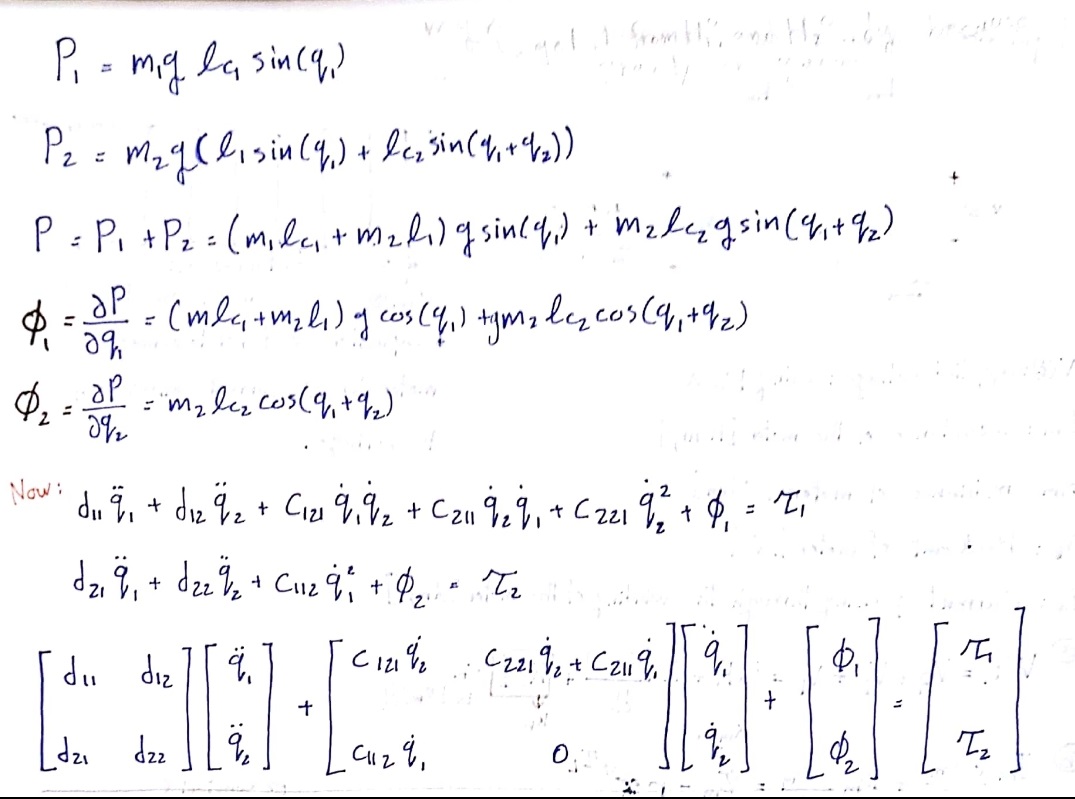 P₁ = m₁g lc₁ sin(q₁)
P₂ = m₂g(l₁ sin(q₁) + lc₂ sin(q₁+q₂))
P = P₁ + P₂ = (m₁lc₁ + m₂l₁) g sin(q₁) + m₂lc₂ g sin(q₁+q₂)
ϕ₁ = ∂P/∂q₁ = (mlc₁+m₂l₁) g cos(q₁) + gm₂ lc₂ cos(q₁+q₂)
ϕ₂ = ∂P/∂q₂ = m₂ lc₂ cos(q₁+q₂)
Now: d₁₁ q̈₁ + d₁₂ q̈₂ + C₁₂₁ q̇₁q̇₂ + C₂₁₁ q̇₂q̇₁ + C₂₂₁ q̇₂² + ϕ₁ = τ₁
d₂₁ q̈₁ + d₂₂ q̈₂ + C₁₁₂ q̇₁² + ϕ₂ = τ₂
[d₁₁ d₁₂] [q̈₁] + [C₁₂₁ q̇₂ C₂₂₁ q̇₂ + C₂₁₁ q̇₁] [q̇₁] + [ϕ₁] = [τ₁]
[d₂₁ d₂₂] [q̈₂] [C₁₁₂ q̇₁ 0] [q̇₂] [ϕ₂] [τ₂]